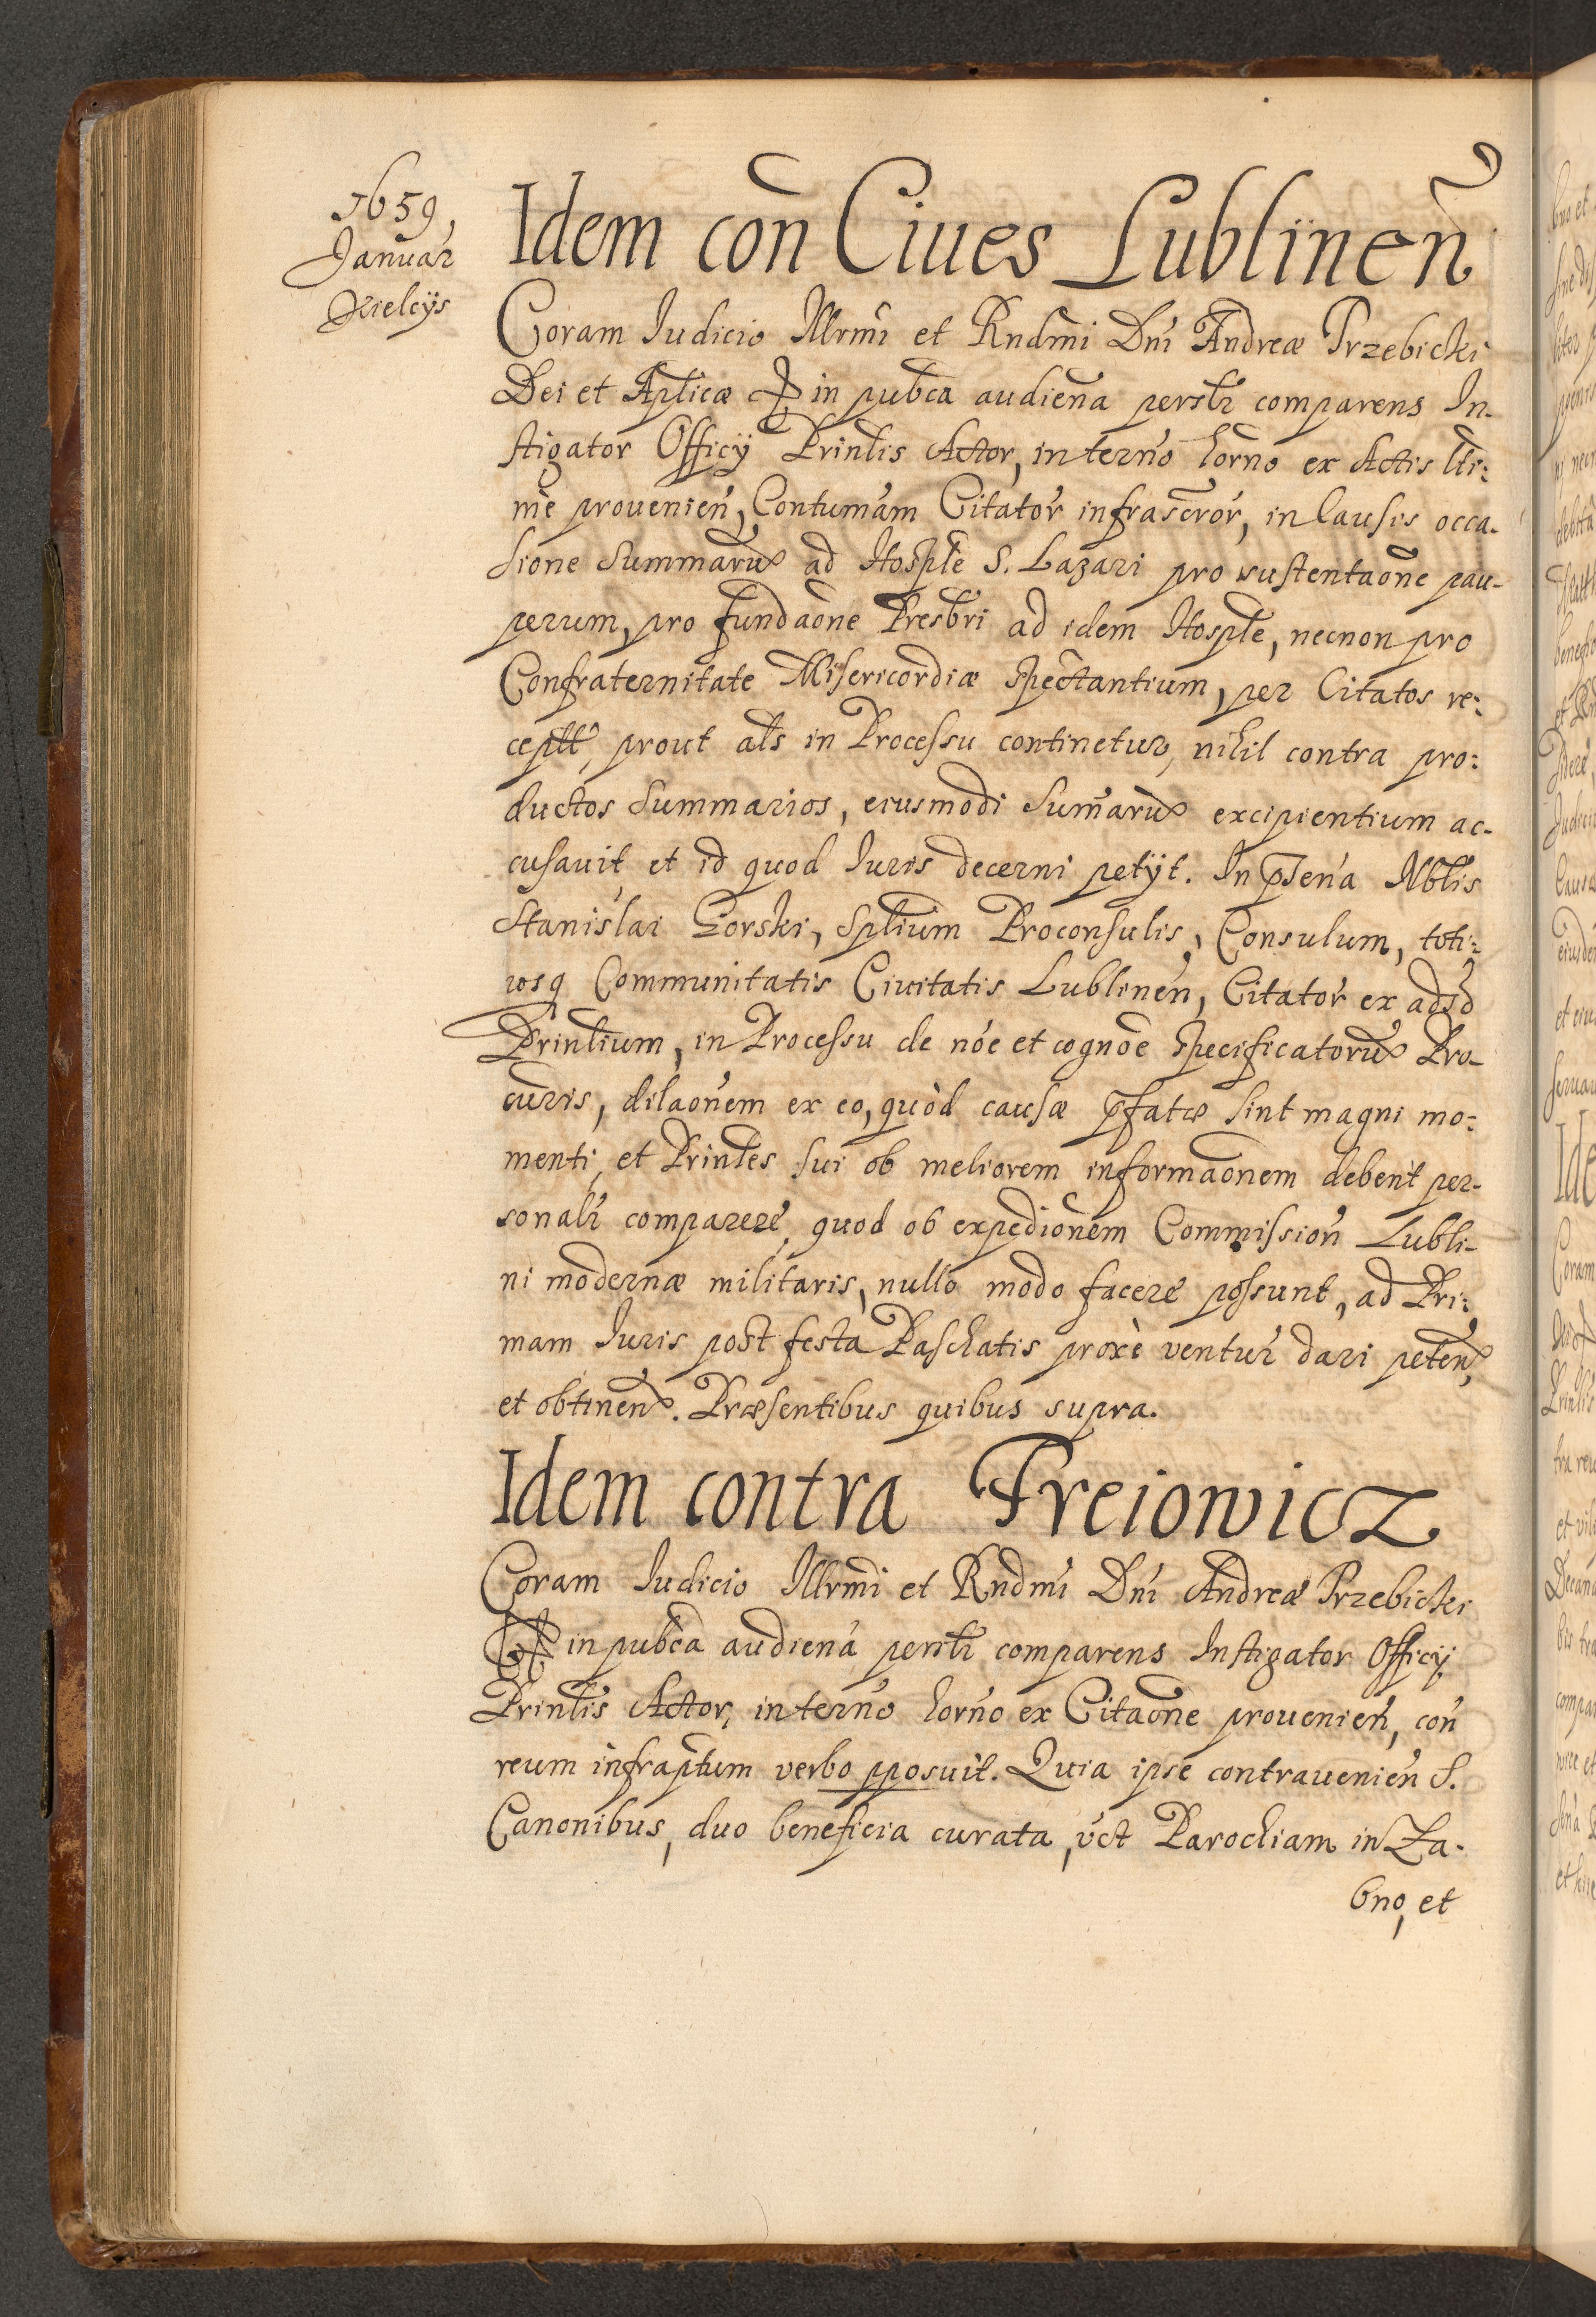 1659
Januar
Kielcÿs
Idem con̄ Ciues Lublinen̄
Coram Iudicio Illrmi et Rndmi Dni Andreæ Trzebicki
Dei et Aplicæ in pubca audiena persolr comparens In-
stigator Officÿ Prinlis Actor, in terno horno ex Actis
me prouenien, Contumam Citator infrascror, in causis occa-
sione Summaru ad Hosple S. Lazari pro sustentaone pau-
perum, pro fundaone Presbri ad idem Hosple, necnon pro
Confraternitate Misericordiæ spectantium, per Citatos re:
ceptt, prout als in Processu continetur, nihil contra pro:
ductos Summarios, eiusmodi Sum̄aru excipientium ac-
cusauit et id quod Iuris decerni petÿt. In pñtena Nblis
Stanislai Gorski, Splium Proconsulis, Consulum, toti:
usq Communitatis Ciuitatis Lublinen, Citator ex adso
Prinlium, in Processu de noe et cognoe specificatoru Pro-
curis, dilaonem ex eo, quòd causæ pfatæ sint magni mo:
menti, et Prinles sui ob meliorem informaonem debent per-
sonalr comparere, quod ob expedionem Commission Lubli-
ni modernæ militaris, nullo modo facere possunt, ad Pri:
mam Iuris post festa Paschatis proxè ventur dari peten,
et obtinen. Præsentibus quibus supra.
Idem contra Freiowicz
Coram Iudicio Illrmi et Rndmi Dni Andreæ Trzebicki
in pubca audiena persolr comparens Instigator Officÿ
Prinlis Actor, in terno horno ex Citaone prouenien, con̄
reum infraptum verbo pposuit. Quia ipse contrauenien S.
Canonibus, duo beneficia curata, vct Parochiam in Za-
bno, et